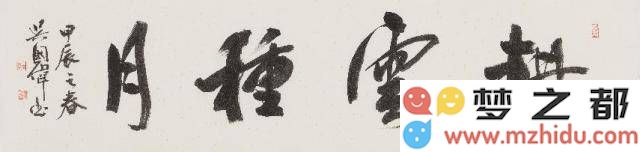 耕雲種月
甲辰之春
吳國偉书
梦之都
www.mzhidu.com